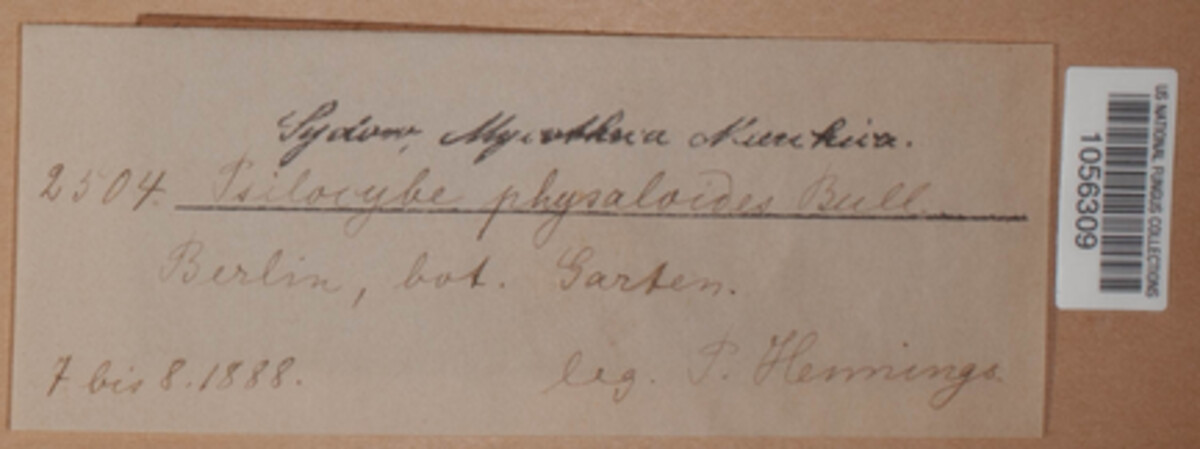 Sydow, Mycotheca Marchica.
2504. Psilocybe physaloides Bull.
Berlin, bot. Garten.
7 bis 8. 1888. leg. P. Hennings.
US NATIONAL FUNGUS COLLECTIONS
1056309